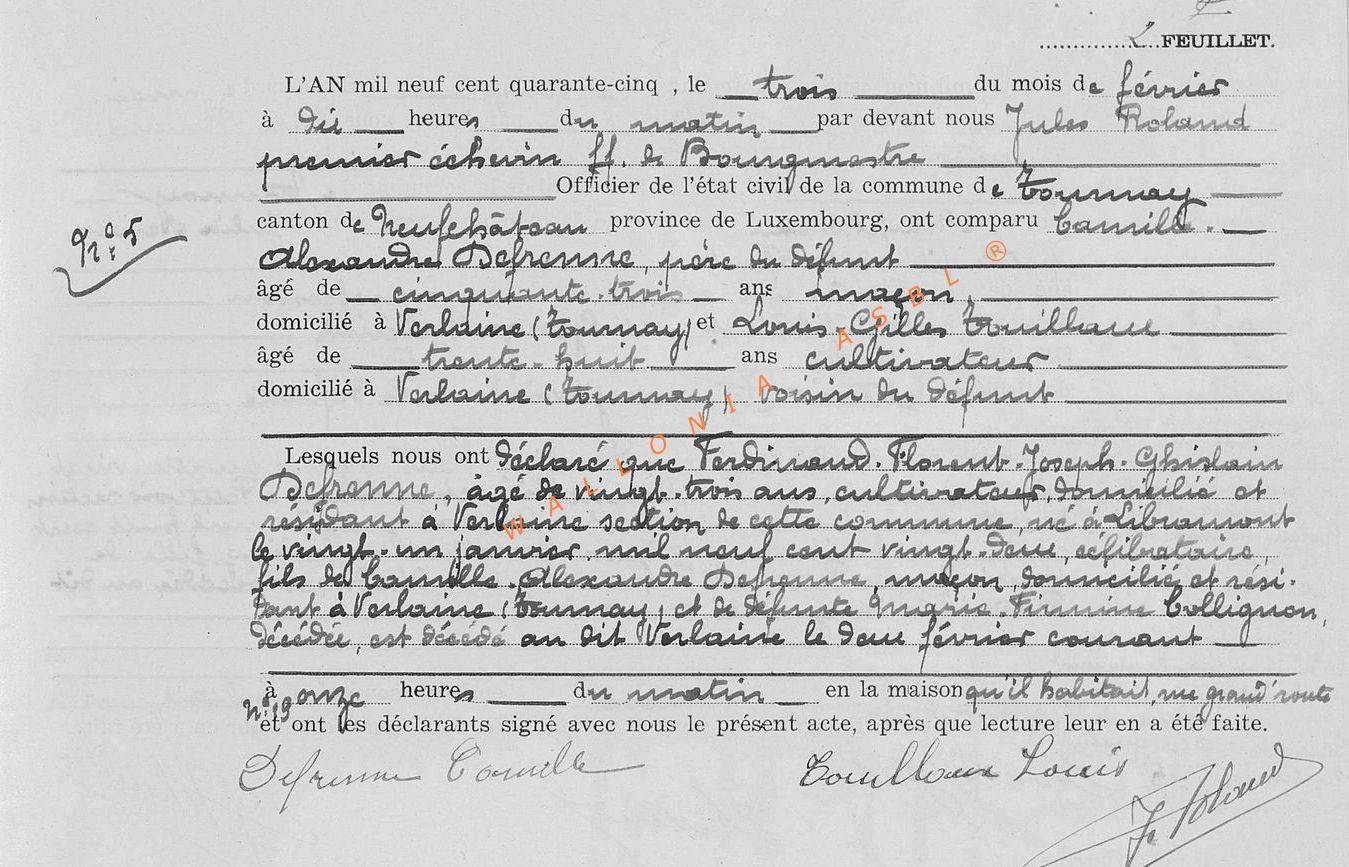 2 FEUILLET.
L'AN mil neuf cent quarante-cinq , le trois du mois de février
à dix heures du matin par devant nous Jules Roland
premier échevin ff. de Bourgmestre
Officier de l'état civil de la commune de Tournay
N° 5
canton de Neufchâteau province de Luxembourg, ont comparu Camille-
Alexandre Defrenne, père du défunt
âgé de cinquante-trois ans maçon,
domicilié à Verlaine (Tournay) et Louis-Gilles Touilloux
âgé de trente-huit ans cultivateur
domicilié à Verlaine (Tournay) voisin du défunt
Lesquels nous ont déclaré que Ferdinand-Florent-Joseph-Ghislain
Defrenne, âgé de vingt-trois ans, cultivateur, domicilié et
résidant à Verlaine section de cette commune, né à Libramont
le vingt-un janvier mil neuf cent vingt-deux, célibataire,
fils de Camille-Alexandre Defrenne, maçon, domicilié et rési-
dant à Verlaine (Tournay) et de défunte Marie Firmine Collignon,
décédée, est décédé au dit Verlaine le deux février courant
à onze heures du matin en la maison qu'il habitait, rue grand'route
n° 19
et ont les déclarants signé avec nous le présent acte, après que lecture leur en a été faite.
Defrenne Camille Touilloux Louis
J. Roland
WALLONIA ASBL ®